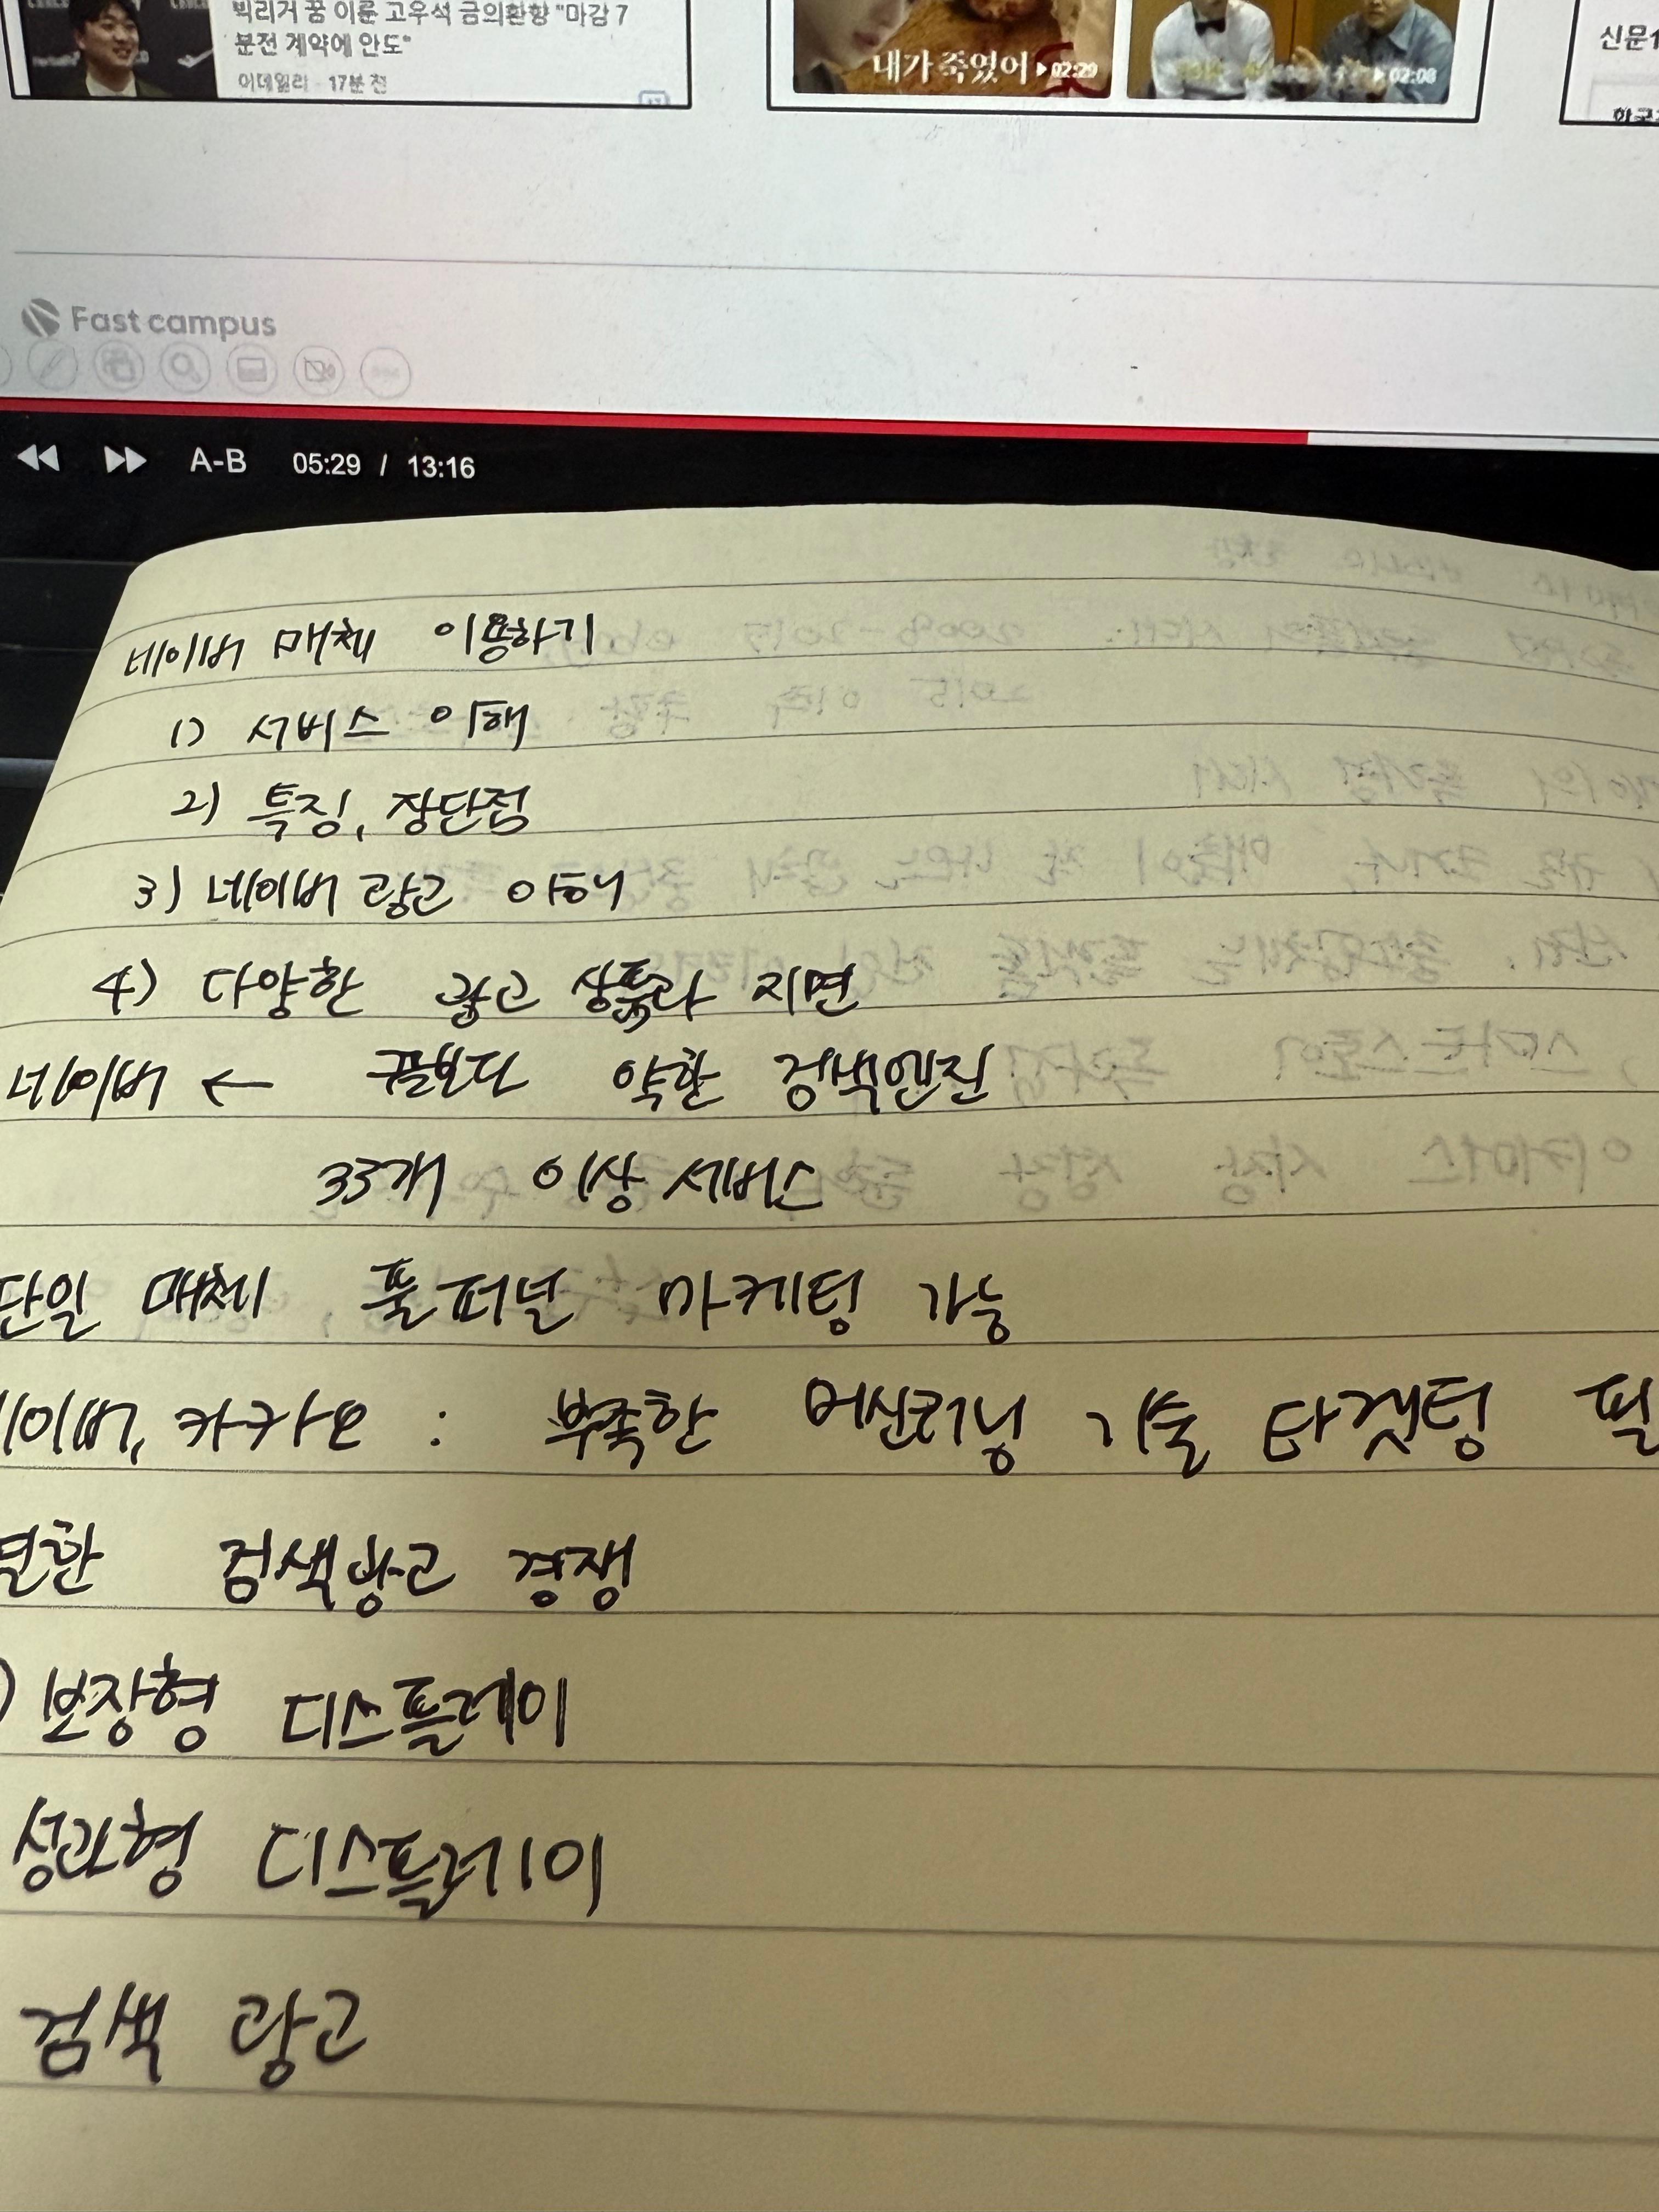 빅리거 꿈 이룬 고우석 금의환향 "마감 7
분전 계약에 안도"
이데일리 · 17분 전
내가 죽었어 ▶02:29
▶02:08
신문1
Fast campus
A-B 05:29 / 13:16
네이버 매체 이용하기
1) 서비스 이해
2) 특징, 장단점
3) 네이버 광고 이해
4) 다양한 광고 상품과 지면
네이버 ← 구글보다 약한 검색엔진
33개 이상 서비스
단일 매체 풀퍼널 마케팅 가능
네이버, 카카오 : 부족한 머신러닝 기술 타겟팅 필
열한 검색광고 경쟁
) 보장형 디스플레이
성과형 디스플레이
검색 광고